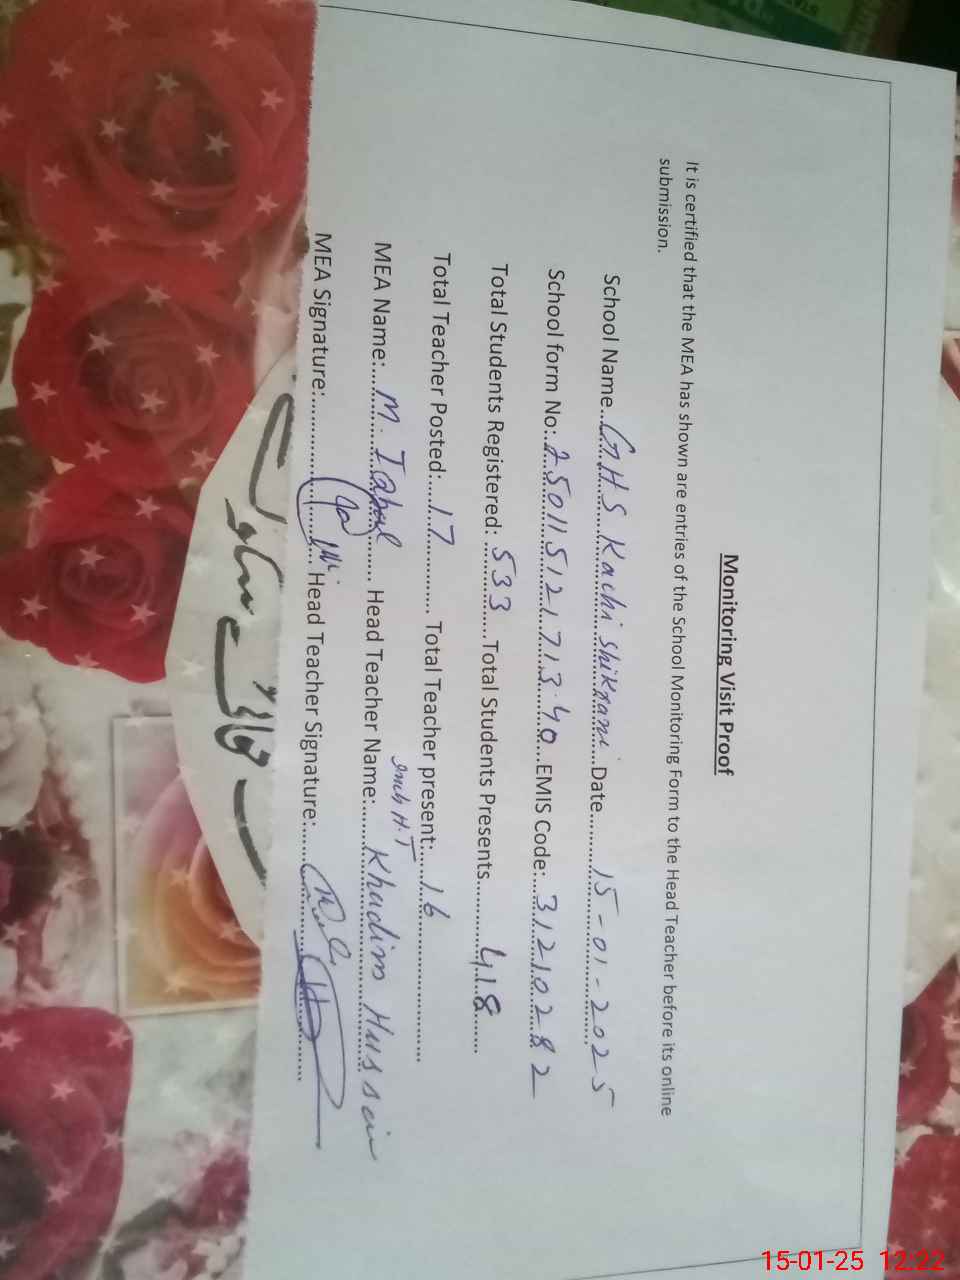 Monitoring Visit Proof
It is certified that the MEA has shown are entries of the School Monitoring Form to the Head Teacher before its online
submission.
School Name...GHS Kachi Shikrani...Date...15-01-2025
School form No:.25011512171340...EMIS Code:...31210282
Total Students Registered: ...533...Total Students Presents...418...
Total Teacher Posted:...17... Total Teacher present:...16...
MEA Name:...M. Iqbal... Head Teacher Name:...Khadim Hussain
MEA Signature:... Head Teacher Signature:...
15-01-25 12:22